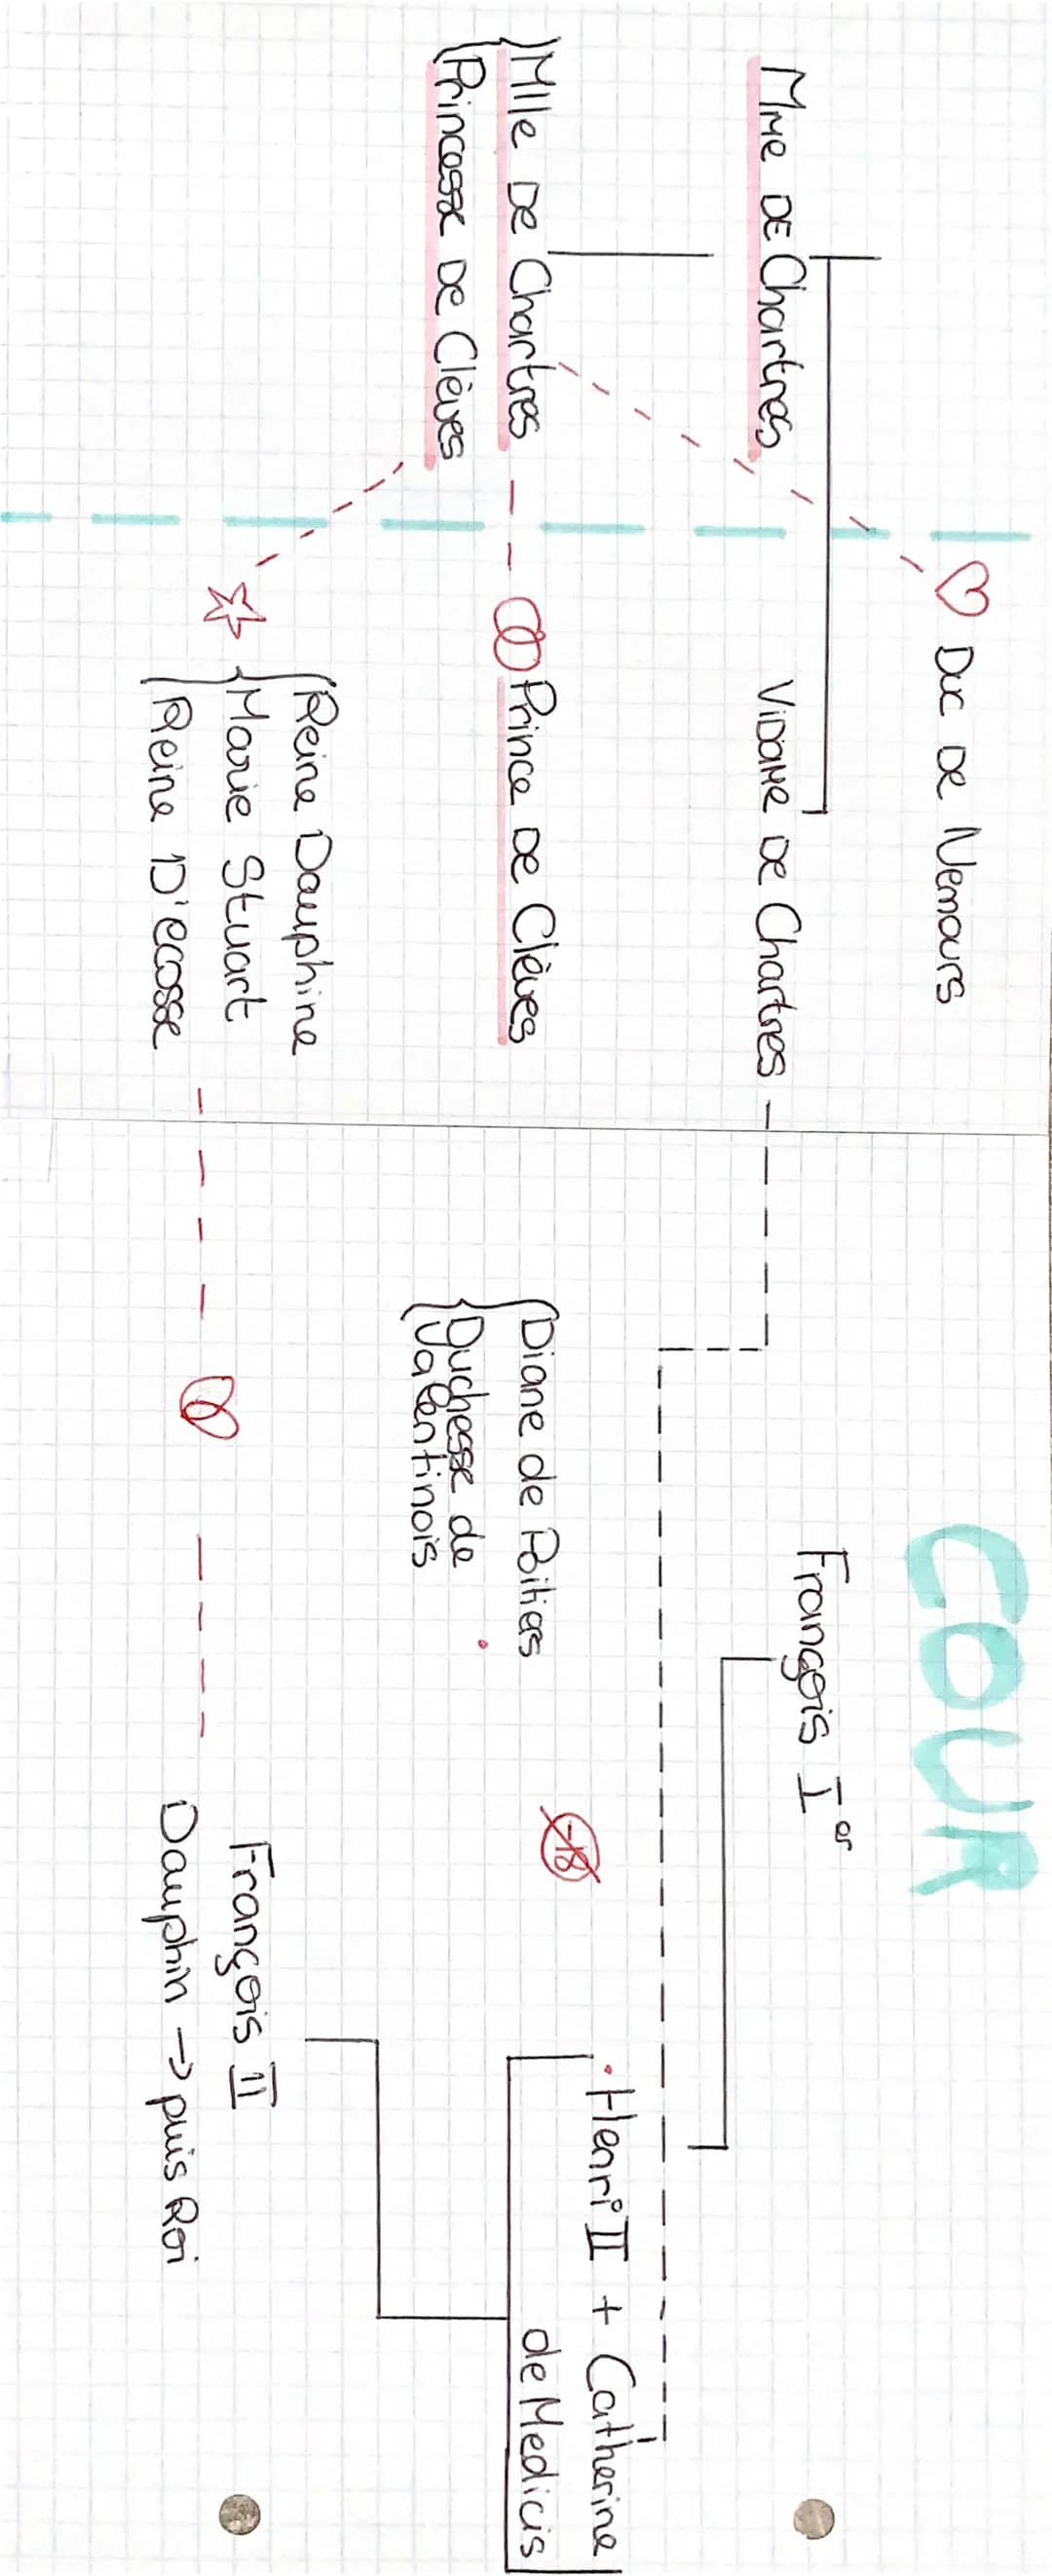 COUR
Duc de Nemours
François Ier
Mme de Chartres
Vidame de Chartres
Henri II + Catherine
de Medicis
Mlle de Chartres
Princesse de Clèves
Prince de Clèves
Diane de Poitiers
Duchesse de
Valentinois
-18
Reine Dauphine
Marie Stuart
Reine D'ecosse
François II
Dauphin → puis Roi